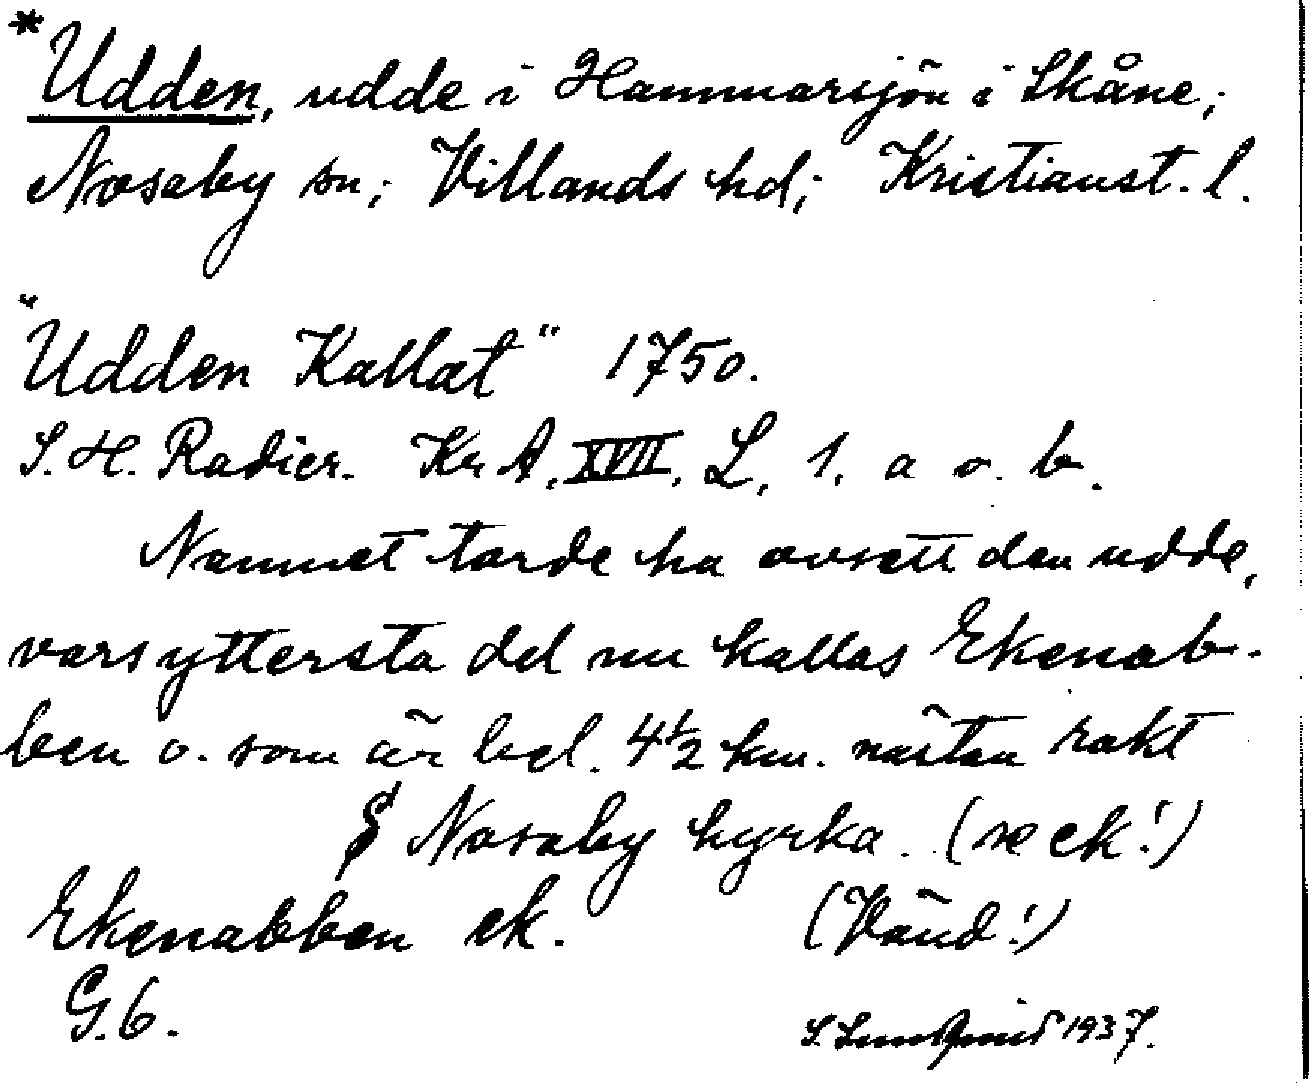 *Udden, udde i Hammarsjön i Skåne;
Nosaby sn; Villands hd; Kristianst. l.
"Udden Kallat" 1750.
S. H. Radier. Kr A, XVII, L, 1. a o. b.
Namnet torde ha avsett den udde,
vars yttersta del nu kallas Ekenab-
ben o. som är bel. 4 1/2 km. nästan rakt
S Nosaby kyrka. (se ek!)
Ekenabben ek. (Vänd!)
G. 6.
S. Lundquist 1937.